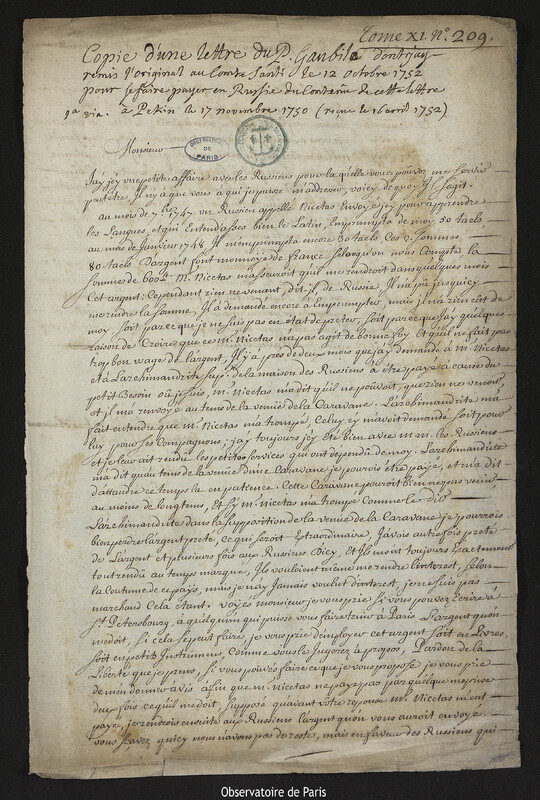 Tome XI. N.º 209.
Copie d'une lettre du P. Gaubil dont j'ay
remis l'original au Comte Santi le 12 octobre 1752
pour se faire payer en Russie du Contenu de cette lettre
à Pekin le 17 novembre 1750 (reçue le 16 avril 1752)
OBSERVATOIRE DE PARIS
Monsieur
J'ay icy une petite affaire avec les Russiens pour laquelle vous pouvez me servir
peutetre, Il n'y a que vous a qui je puisse m'addresser, voicy de quoy Il s'agit.
au mois de 7bre 1747. un Russien appellé Nicetas Envoyé icy pour apprendre
les Langues, et qui Entend assez bien le Latin, Emprumpta de moy 50 taels
au mois de Janvier 1748. Il m'emprumpta encore 30 taels Ces 2 sommes
80 taels D'argent font monnoye de france selon qu'on nous Compte, la
somme de 600ᵗᵗ. Mr. Nicetas m'assuroit qu'il me rendroit dans quelques mois
Cet argent. Cependant rien ne venant, dit-il, de Russie, Il n'a pu jusqu'icy
me rendre la somme, Il a demandé encore à Emprumpter, mais je n'ai rien été de
moy, soit parce que je ne suis pas en état de preter, soit parce que j'ay quelques
raison de Croire que ce Mr. Nicetas n'a pas agit de bonne foy Et qu'il ne fait pas
trop bon usage de l'argent, Il y a pres de deux mois que j'ay demandé à Mr Nicetas
et à L'archimandrite Sup.r de la maison des Russiens à etre payé à cause du
petit Besoin où je suis, mr. Nicetas m'a dit qu'il ne pouvoit, que rien ne venoit,
et il m'a renvoyé au tems de la venue de la Caravane. L'archimandrite m'a
fait entendre que Mr. Nicetas m'a trompé, Celuy cy m'avoit demandé soit pour
luy, pour ses Compagnons; j'ay toujours icy eté bien avec mm. les Russiens
et je leur ait rendu les petits services qui ont dependu de moy. L'archimandrite
m'a dit qu'au tems de la venue d'une Caravane je pourrois etre payé, et m'a dit
d'attendre ce temps la en patience. Cette Caravane pourroit Bien ne pas venir
au moins de longtems, et sy Mr Nicetas m'a trompé Comme le dit
L'archimandrite dans la supposition de la venue de la Caravane je pourrois
bien perdre l'argent preté, ce qui seroit Extraordinaire, J'avois autrefois preté
de L'argent et plusieurs fois aux Russiens d'icy, et Ils m'ont toujours exactement
tout rendu au temps marqué, Ils vouloient même me rendre l'interest, selon
la Coutume de ce pays, mais je n'ay Jamais voulut d'interest, je ne suis pas
marchand Cela étant. voyes monsieur je vous prie si vous pouvez Ecrire à
St. Petersbourg, à quelqu'un qui puisse vous faire tenir à Paris L'argent qu'on
me doit, si cela se peut faire, je vous prie d'employer cet argent soit en Livres
soit en petits Instrumens, Comme vous le Jugerez à propos, Pardon de la
Liberté que je prens, si vous pouvés faire ce que je vous propose je vous prie
de m'en donner avis afin que mr. nicetas ne paye pas par quelque meprise
deux fois ce qu'il me doit, supposé qu'avant votre reponse mr. Nicetas m'ent
payé, je rendrois ensuite aux Russiens l'argent qu'on vous auroit envoyé.
vous sçavez qu'icy nous n'avons pas de reste, mais en faveur des Russiens qui
Observatoire de Paris